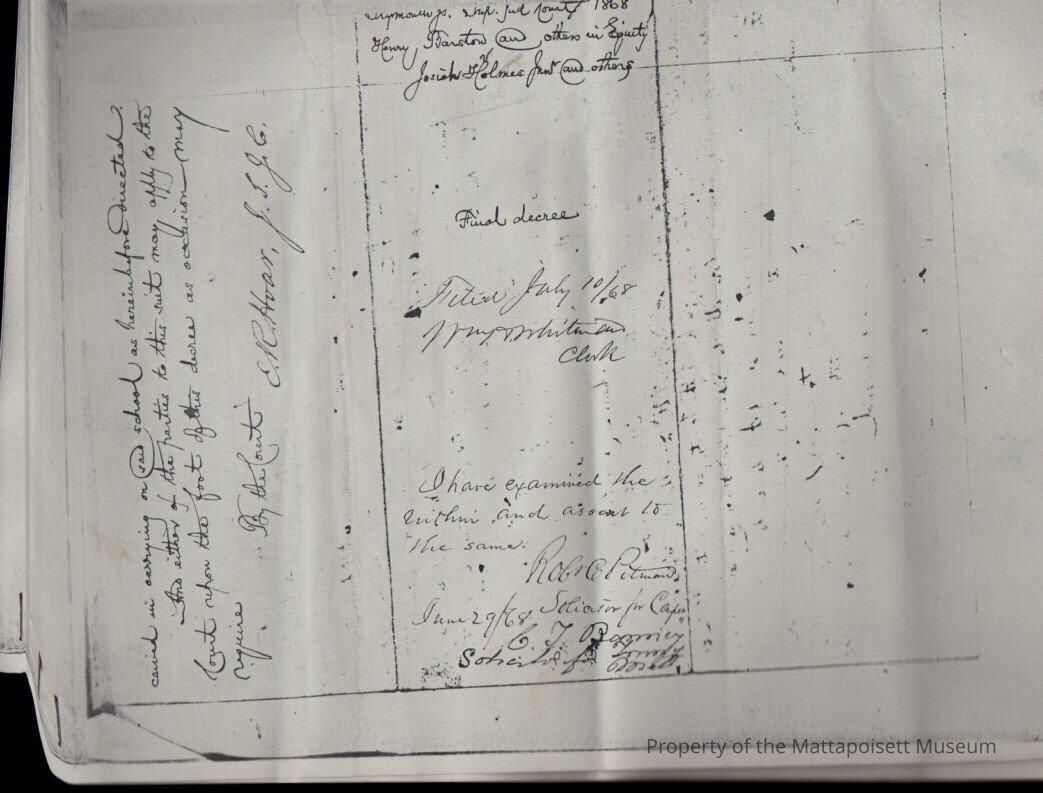 carried in carrying on said school as hereinbefore directed.
And either of the parties to this suit may apply to the
Court upon the foot of this decree as occasion may
require
By the Court
E. R. Hoar, J. S. J. C.
Sup. Jud Court 1868
Henry Barstow and others in Equity
Josiah Holmes Junr and others
Final decree
Filed July 10/68
Whitman
Clerk
I have examined the
within and assent to
the same.
Robt C Pitman
Solicitor for
June 29/68
C. T. Bonney
Solicitor for
Property of the Mattapoisett Museum